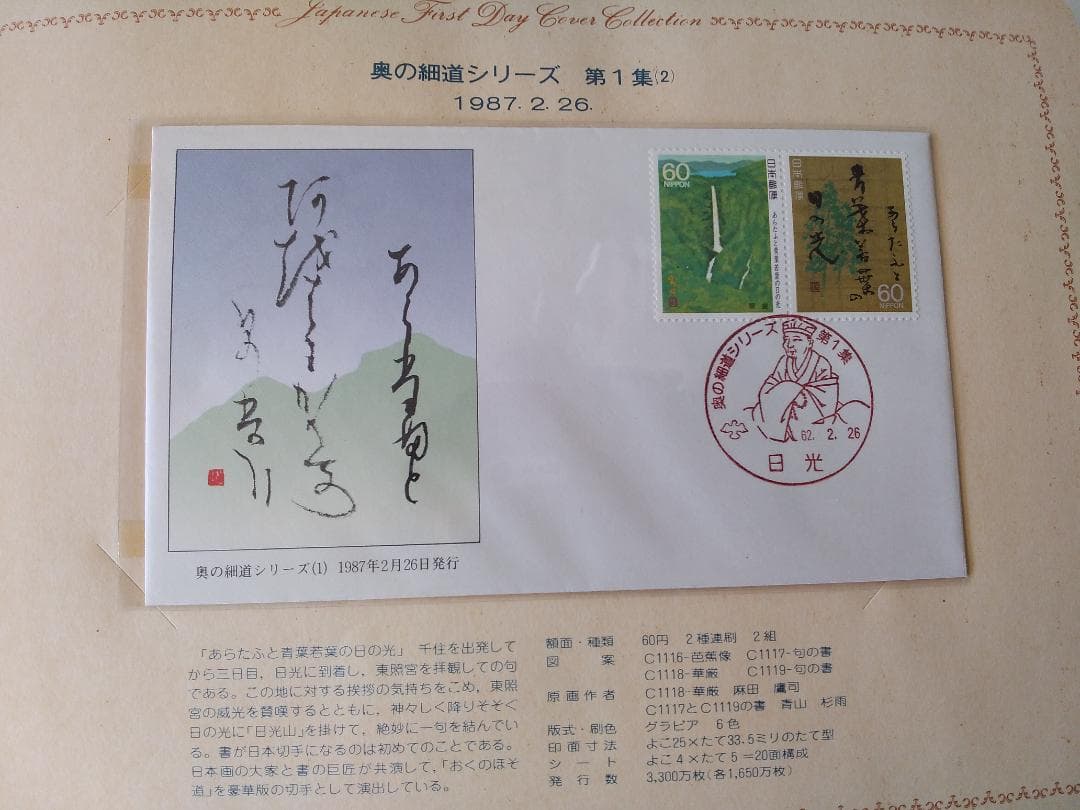 Japanese First Day Cover Collection
奥の細道シリーズ 第1集(2)
1987. 2. 26.
60
NIPPON
日本郵便
あらたふと青葉若葉の日の光
華厳
日本郵便
あらたふと
青葉若葉の
日の光
60
NIPPON
奥の細道シリーズ 第1集
62. 2. 26
日光
奥の細道シリーズ(1) 1987年2月26日発行
「あらたふと青葉若葉の日の光」 千住を出発して
から三日目，日光に到着し，東照宮を拝観しての句
である。この地に対する挨拶の気持ちをこめ，東照
宮の威光を賛嘆するとともに，神々しく降りそそぐ
日の光に「日光山」を掛けて，絶妙に一句を結んでい
る。書が日本切手になるのは初めてのことである。
日本画の大家と書の巨匠が共演して，「おくのほそ
道」を豪華版の切手として演出している。
額面・種類 60円 2種連刷 2組
図案 C1116-芭蕉像 C1117-句の書
C1118-華厳 C1119-句の書
原画作者 C1118-華厳 麻田 鷹司
C1117とC1119の書 青山 杉雨
版式・刷色 グラビア 6色
印面寸法 よこ25×たて33.5ミリのたて型
シート よこ4×たて5＝20面構成
発行数 3,300万枚(各1,650万枚)